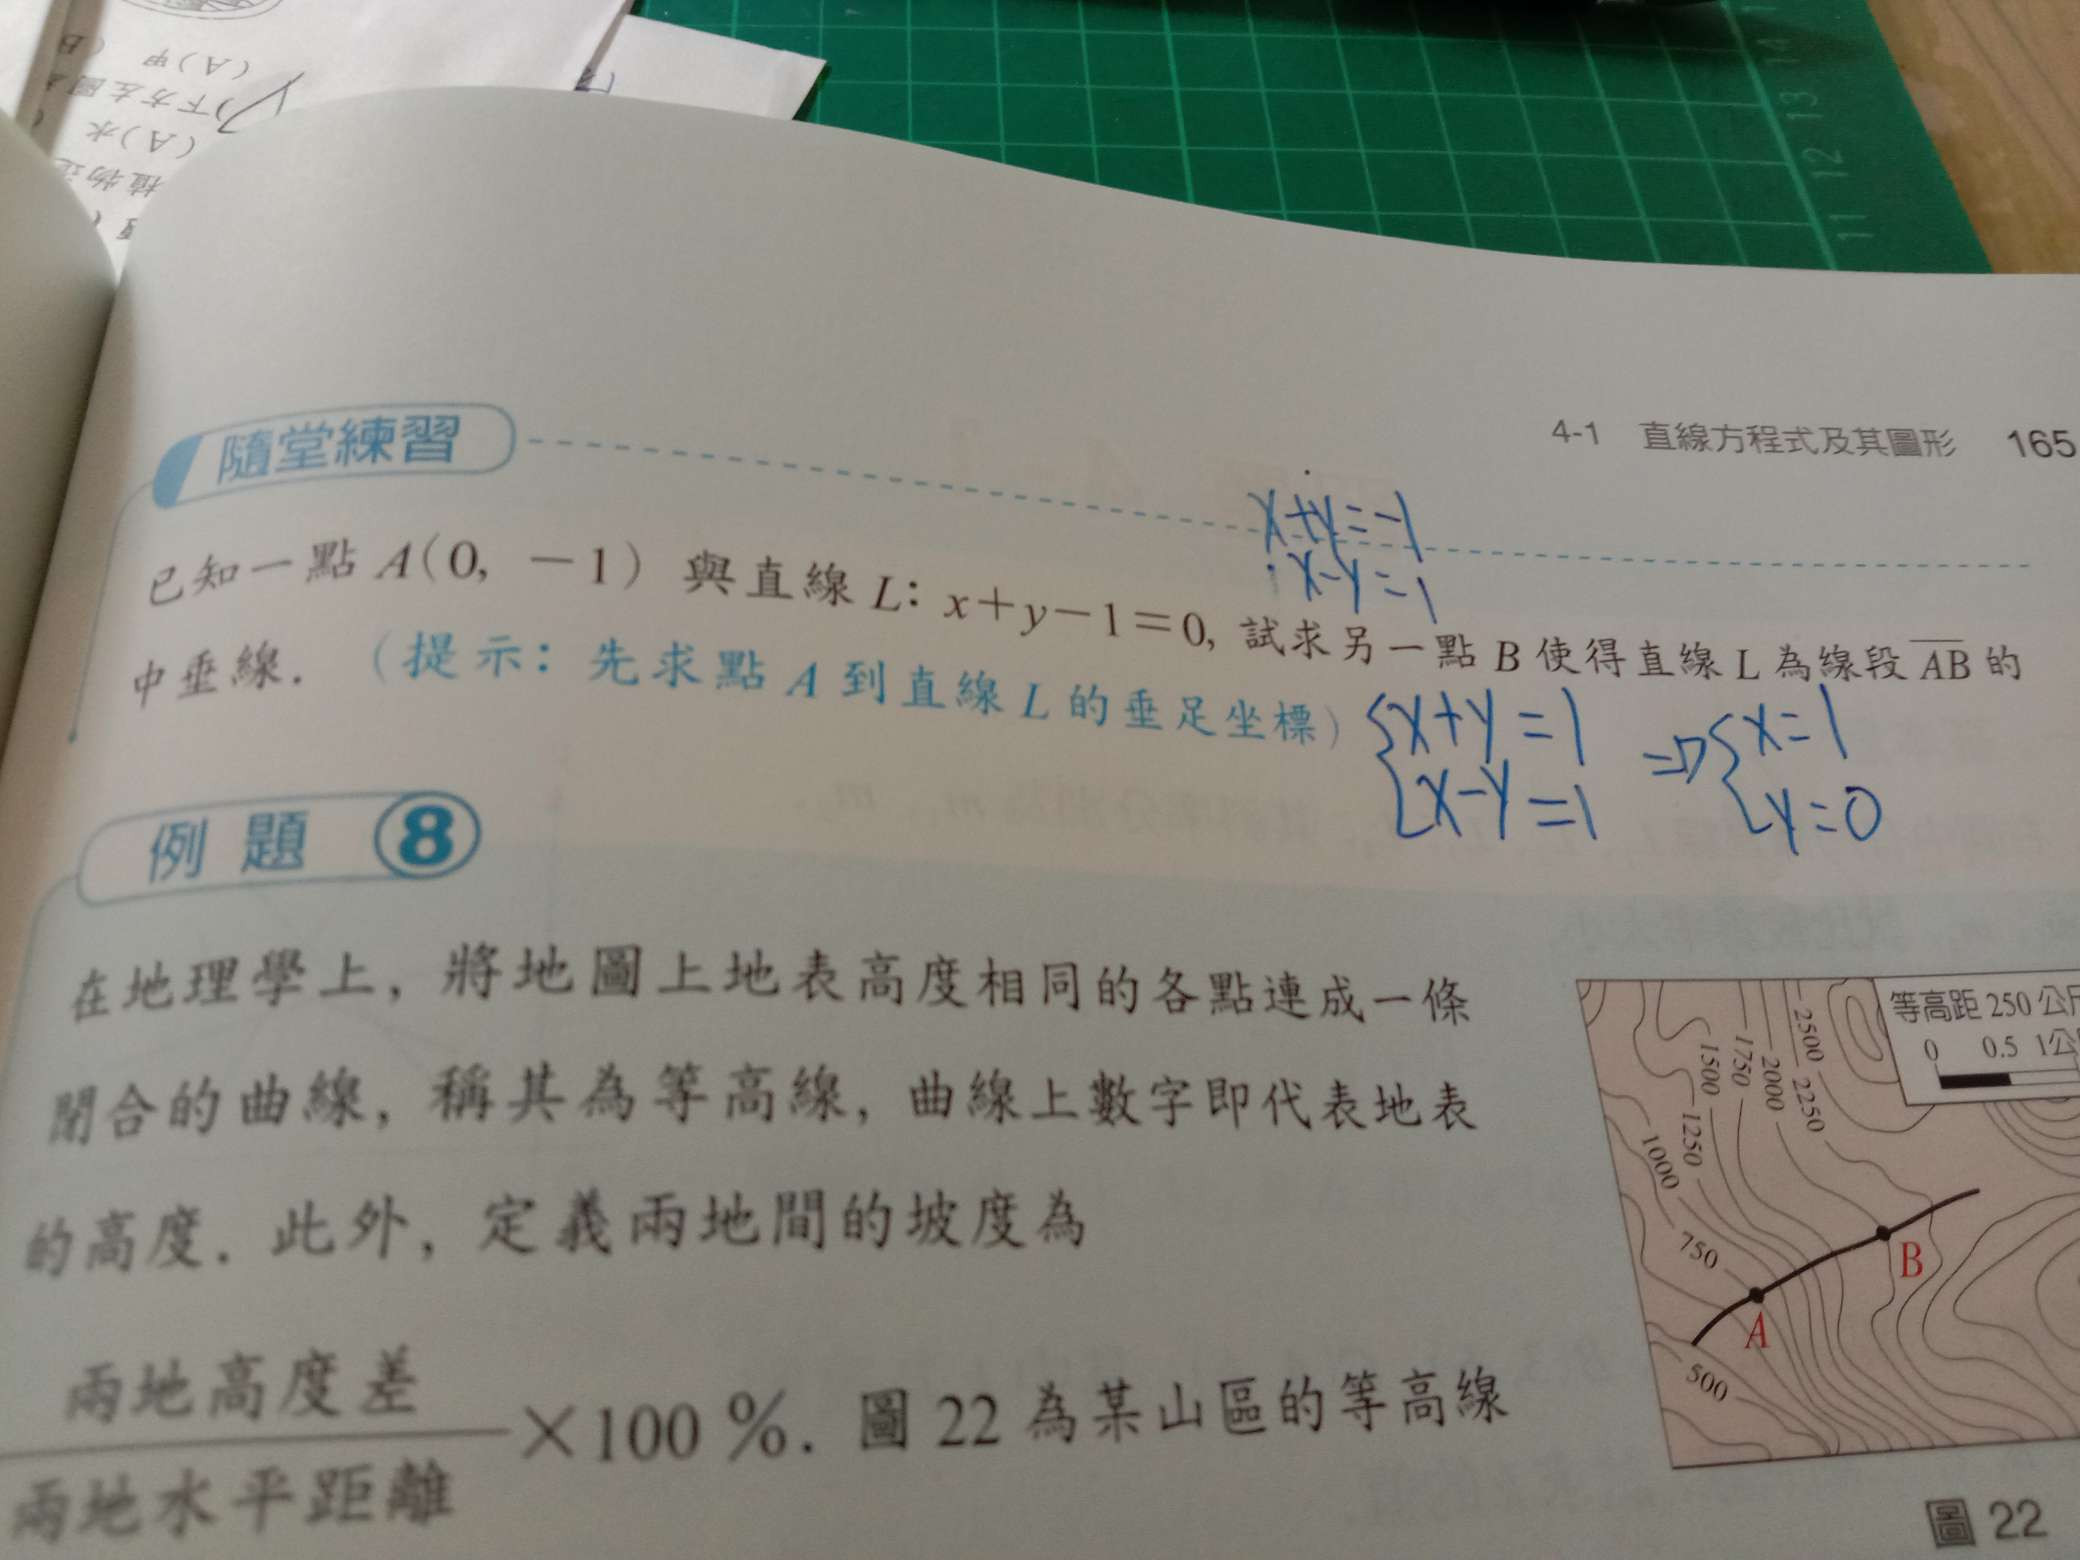 (A)甲 (B
)下方左圖
(A)水 (
植物
4-1 直線方程式及其圖形 165
隨堂練習
x+y=-1
x-y=1
已知一點 A(0, -1) 與直線 L: x+y-1=0, 試求另一點 B 使得直線 L 為線段 AB 的
中垂線. (提示: 先求點 A 到直線 L 的垂足坐標)
{x+y=1 ⇒ {x=1
x-y=1 y=0
例題 8
在地理學上, 將地圖上地表高度相同的各點連成一條
閉合的曲線, 稱其為等高線, 曲線上數字即代表地表
的高度. 此外, 定義兩地間的坡度為
兩地高度差
兩地水平距離
×100 %. 圖 22 為某山區的等高線
等高距 250 公尺
0 0.5 1公
2500
2250
2000
1750
1500
1250
1000
750
500
A
B
圖 22
14
13
12
11